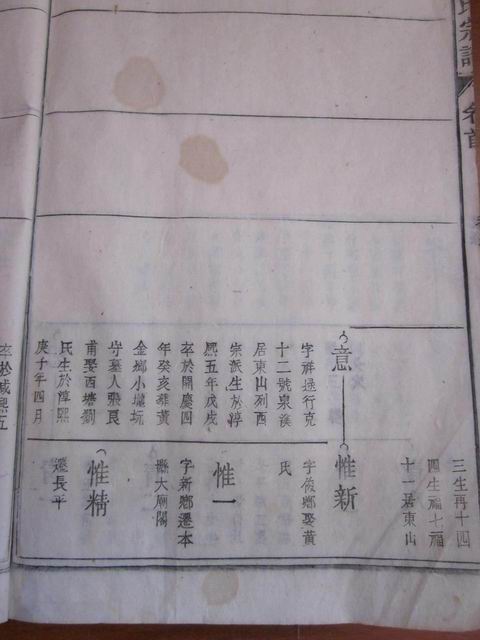 氏宗譜
卷首
三生再十四
四生福七福
十一居東山
意
字祥
行克
十二號泉溪
居東山列西
宗派生於淳
熙五年戊戌
卒於開慶四
年癸亥葬黃
金鄉小壠坑
守墓人張良
甫娶西塘劉
氏生於淳熙
庚子年四月
卒於咸熙五
惟新
字俊鄉娶黃
氏
惟一
字新鄉遷本
縣大廟閣
惟精
遷長平